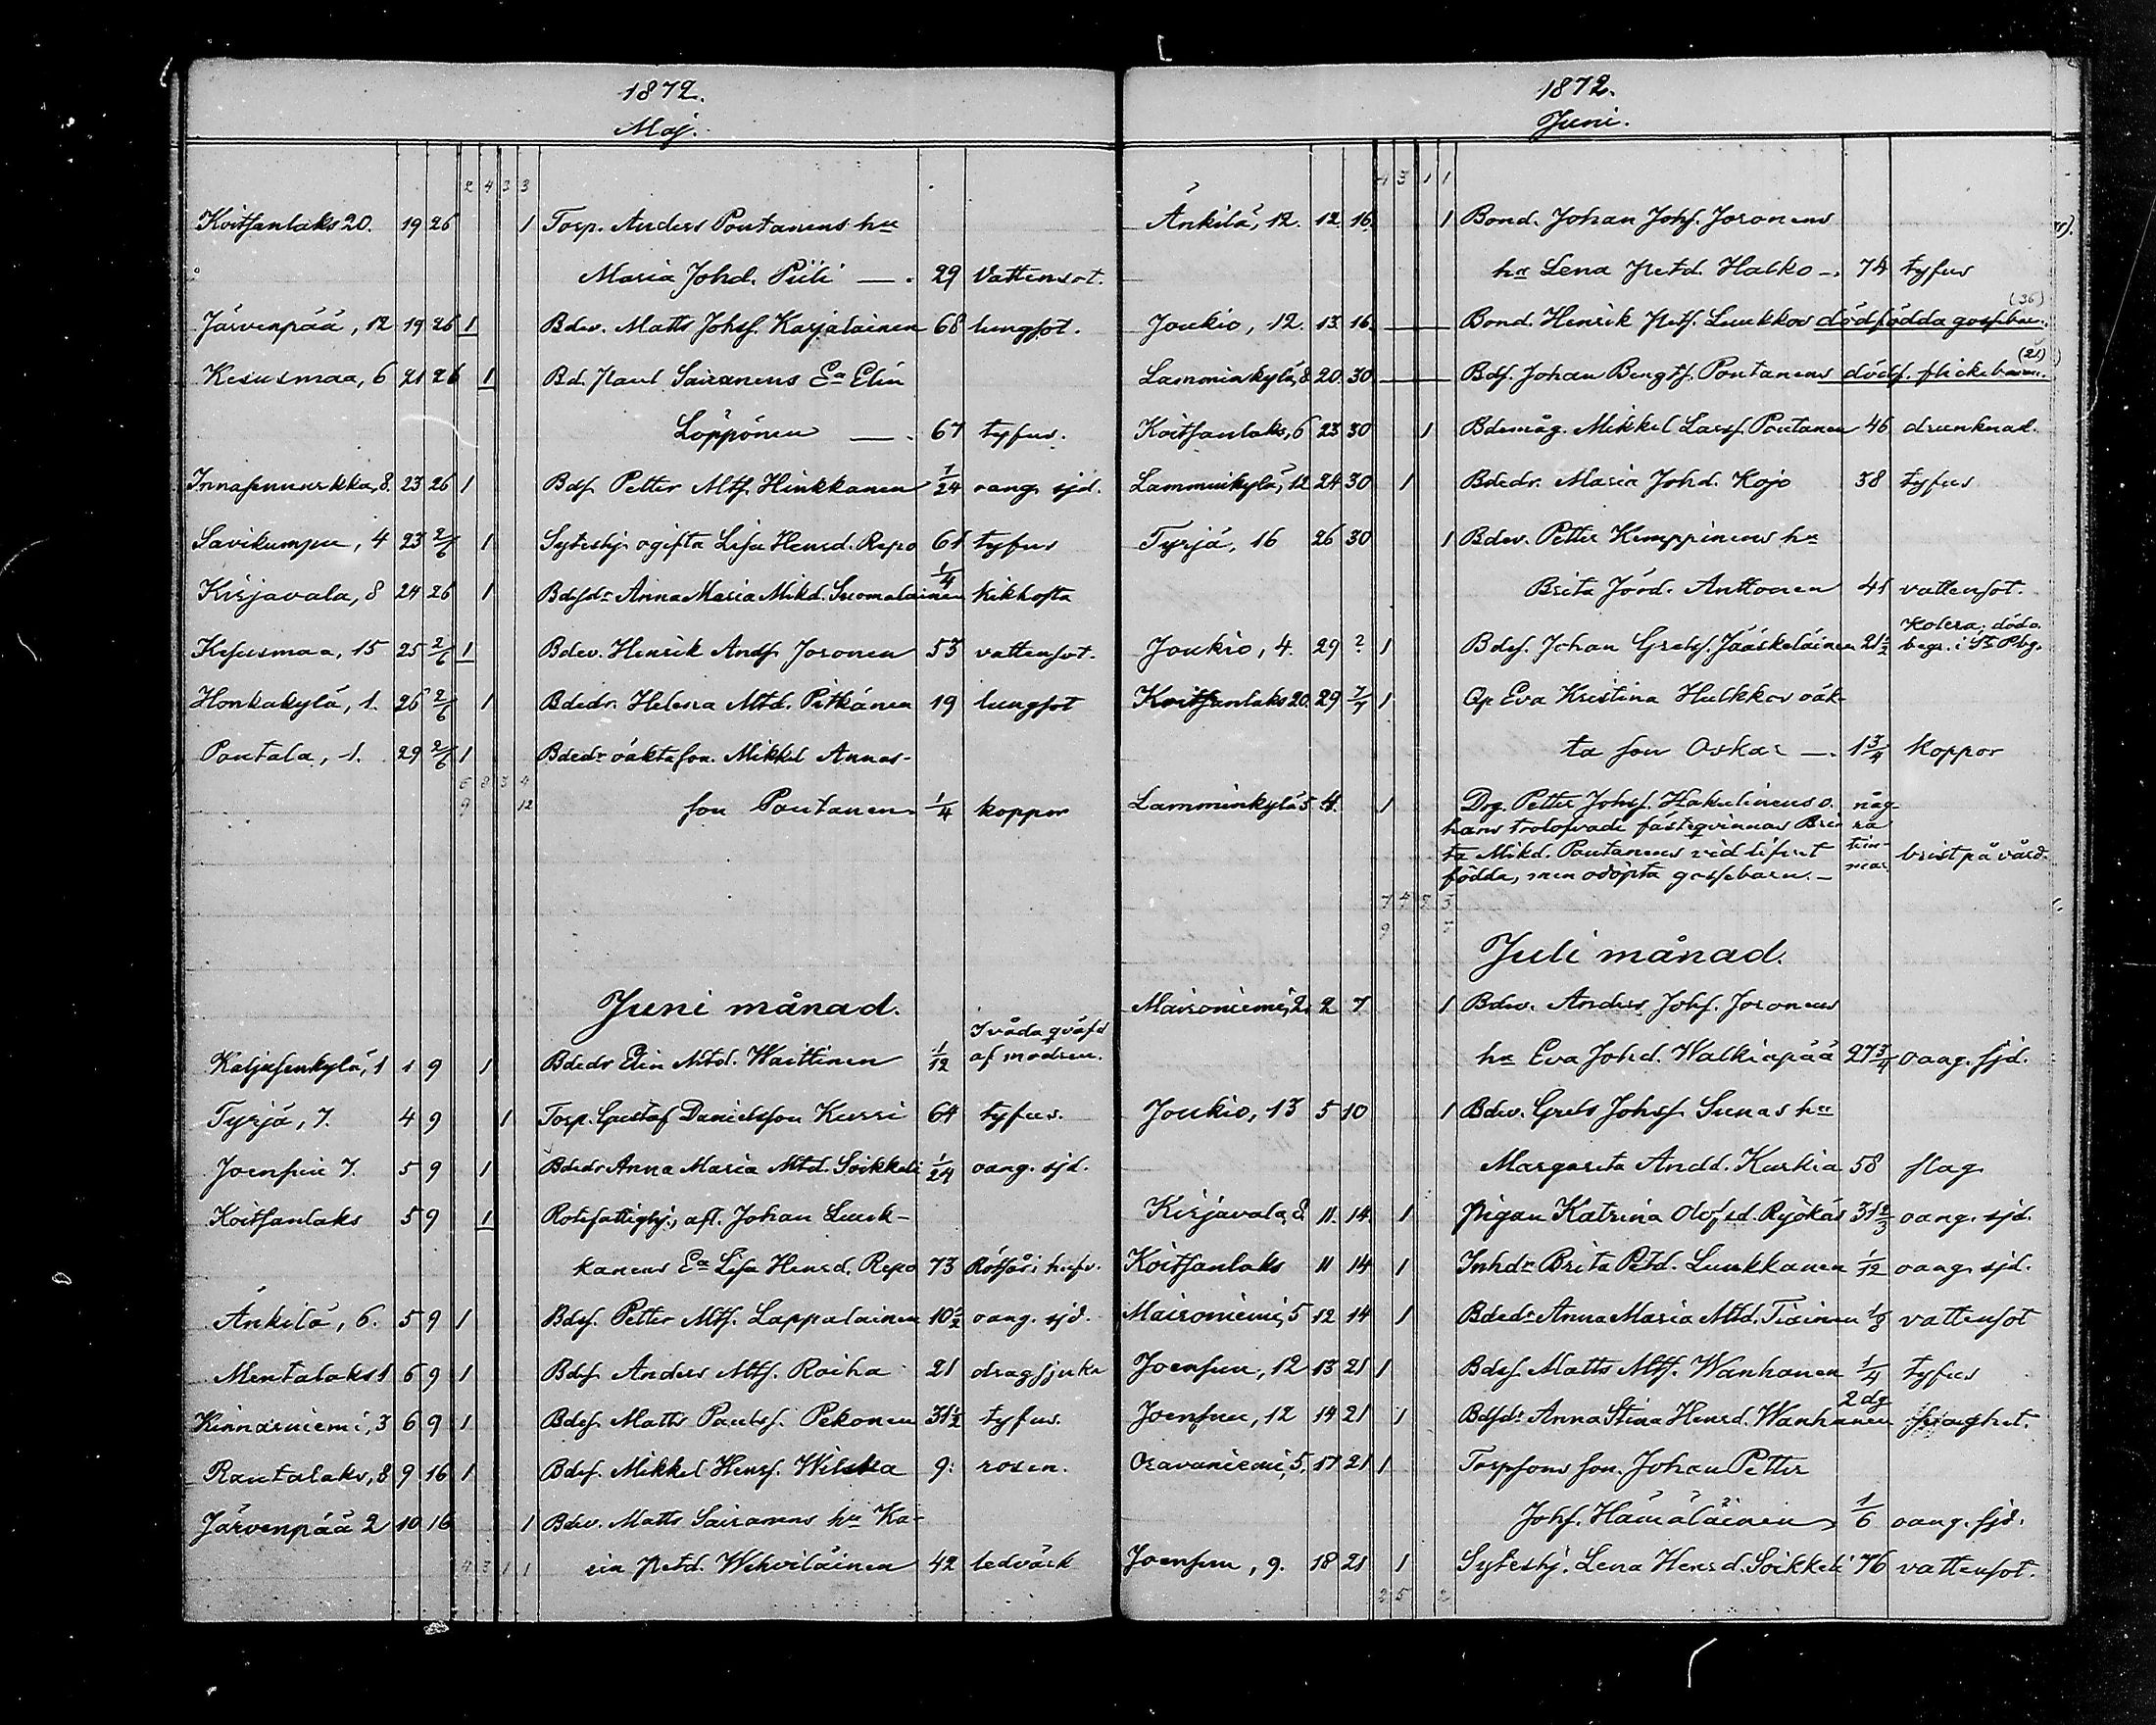 1872.
Maj.
2 4 3 3
Koitsanlaks 20. 19 26 1 Torp. Anders Pontanens hu
Maria Johd. Piili —. 29 Vattensot.
Järvenpää, 12 19 26 1 Bdev. Matts Johsf. Karjalainen 68 lungsot.
Kesusmaa, 6 21 26 1 Bd. Paul Sairanens Ea Elin
Löppönen —. 67 tyfus.
23 26 1 Bdsf Petter Mtsf. Hinkkanen 1/24 oang. sjd.
Savikumpu, 4 23 2/6 1 ogifta Lisa Hensd. Repo 61 tyfus
Kirjavala, 8 24 26 1 Anna Maria Mikd. Suomalainen 1/4 kikhosta
Kesusmaa, 15 25 2/6 1 Bdev. Henrik Andsf Joronen 53 vattensot.
Honkakylä, 1. 26 2/6 1 Bdedr. Helena Mtd. Pitkänen 19 lungsot
Pontala, 1. 29 2/6 1 Bdedr oäkta son Mikkel Annas-
6 8 3 4
9 12
son Pontanen 1/4 koppor
Juni månad.
Kaljusenkylä, 1 1 9 1 Bdedr Elin Mtd. Waittinen 1/12 I våda qväfd
af modren.
Tyrjä, 7. 4 9 1 Torp. Gustaf Danielsson Kurri 64 tyfus.
Joensuu 7. 5 9 1 Bdedr Anna Maria Mtd. Soikkeli 1/24 oang. sjd.
Koitsanlaks 5 9 1 Rotefattighj., afl. Johan Luuk-
kanens Ea Lisa Hensd. Repo 73 Rötsår i hufv.
Änkilä, 6. 5 9 1 Bdsf. Petter Mtsf. Lappalainen 10½ oang. sjd.
Mentalaks 1 6 9 1 Bdsf Anders Mtsf. Roiha 21 dragsjuka
Kinnarniemi, 3 6 9 1 Bdsf. Matts Paulsf. Pekonen 31½ tyfus.
Rautalaks, 8 9 16 1 Bdsf. Mikkel Hensf. Wilska 9. rosen.
Järvenpää 2 10 16 1 Bdev. Matts Sairanens hu Ka-
4 3 1 1 rin Petd. Wehviläinen 42 ledvärk
1872.
Juni.
4 3 1 1
Änkilä, 12. 12 16. 1 Bond. Johan Johsf. Joronens
hu Lena Petd. Halko —. 74 tyfus
(36)
Joukio, 12. 13. 16. Bond. Henrik Petsf. Luukkos dödfödda gossebarn.
(21)
Lamminkylä, 8 20. 30. Bdsf. Johan Bengtsf. Pontanens dödf. flickebarn.
Koitsanlaks, 6 23 30 1 Bdemåg. Mikkel Larsf. Pontanen 46 drunknad.
Lamminkylä, 12 24 30 1 Bdedr. Maria Johd. Kojo 38 tyfus
Tyrjä, 16 26 30 1 Bdev. Petter Kemppinens hu
Brita Jörd. Anttonen 41 vattensot.
Joukio, 4. 29 ? 1 Bdsf. Johan Grelsf. Jääskeläinen 21½ Kolera; död o.
begr. i St. Pbg.
Koitsanlaks 20. 29 7/7 1 Qp Eva Kristina Hulkkos oäk-
ta son Oskar —. 1¾ koppor
Lamminkylä 5 4. 1 Drg. Petter Johsf. Hakulinens o. någ-
hans trolofvade fästeqvinnas Bri- ra
ta Mikd. Pontanens vid lifvet tim-
födda, men odöpta gossebarn. — mar. brist på vård.
7 4 2 3
9 7
Juli månad.
Maironiemi, 2. 2 7 1 Bdev. Anders Johsf. Joronens
hu Eva Johd. Walkiapää 27¾ oang. sjd.
Joukio, 13 5 10 1 Bdev. Grels Johsf. Sunas hu
Margareta Andd. Kurkia 58 slag.
Kirjavala, 8. 11. 14. 1 pigan Katrina Olofsd. Ryökäs 31⅔ oang. sjd.
Koitsanlaks 11 14 1 Inhdr Brita Petd. Luukkanen 1/12 oang. sjd.
Maironiemi, 5 12 14 1 Bdedr Anna Maria Mtd. Tiainen vattensot
Joensuu, 12 13 21 1 Bdsf. Matts Mtsf. Wanhanen 1/4 tyfus
2 dg
Joensuu, 12 14 21 1 Bdsdr Anna Stina Hensd. Wanhanen svaghet.
Oravaniemi, 5. 17 21 1 Torpsons son Johan Petter
Johsf. Hämäläinen 1/6 oang. sjd.
Joensuu, 9. 18 21 1 Lena Hensd. Soikkeli 76 vattensot.
2 5 2